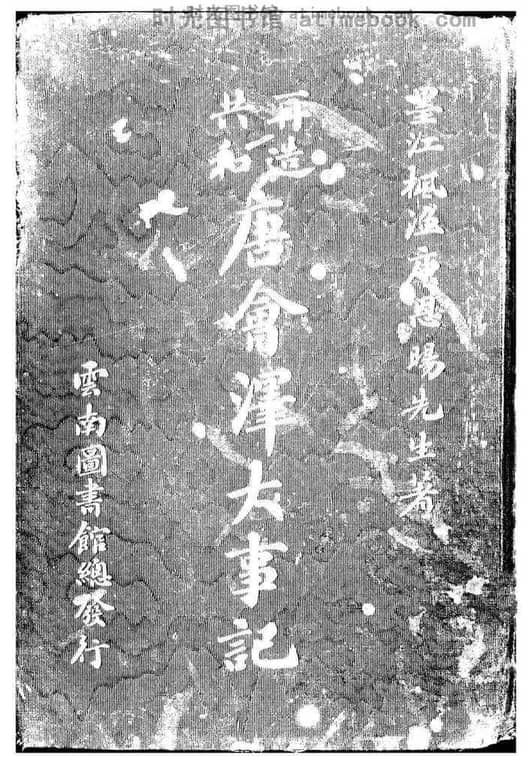 时光图书馆 atimebook.com
墨江楓漁庾恩暘先生著
再造
共和
唐會澤大事記
雲南圖書館總發行